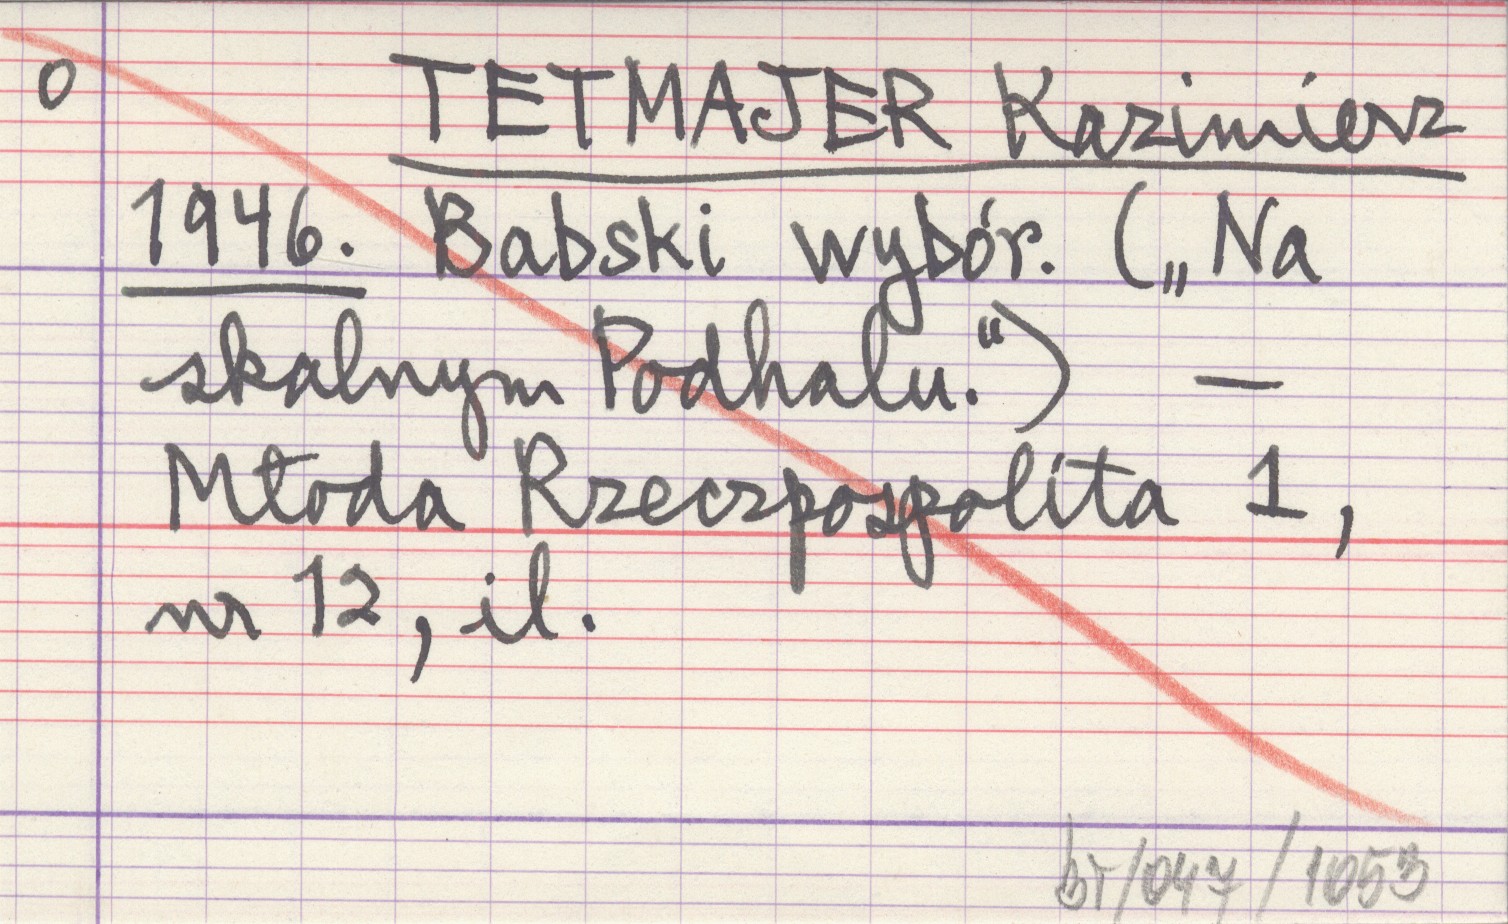 0 TETMAJER Kazimierz
1946. Babski wybór. („Na
skalnym Podhalu.“) —
Młoda Rzeczpospolita 1,
nr 12, il.
bT/047/1053